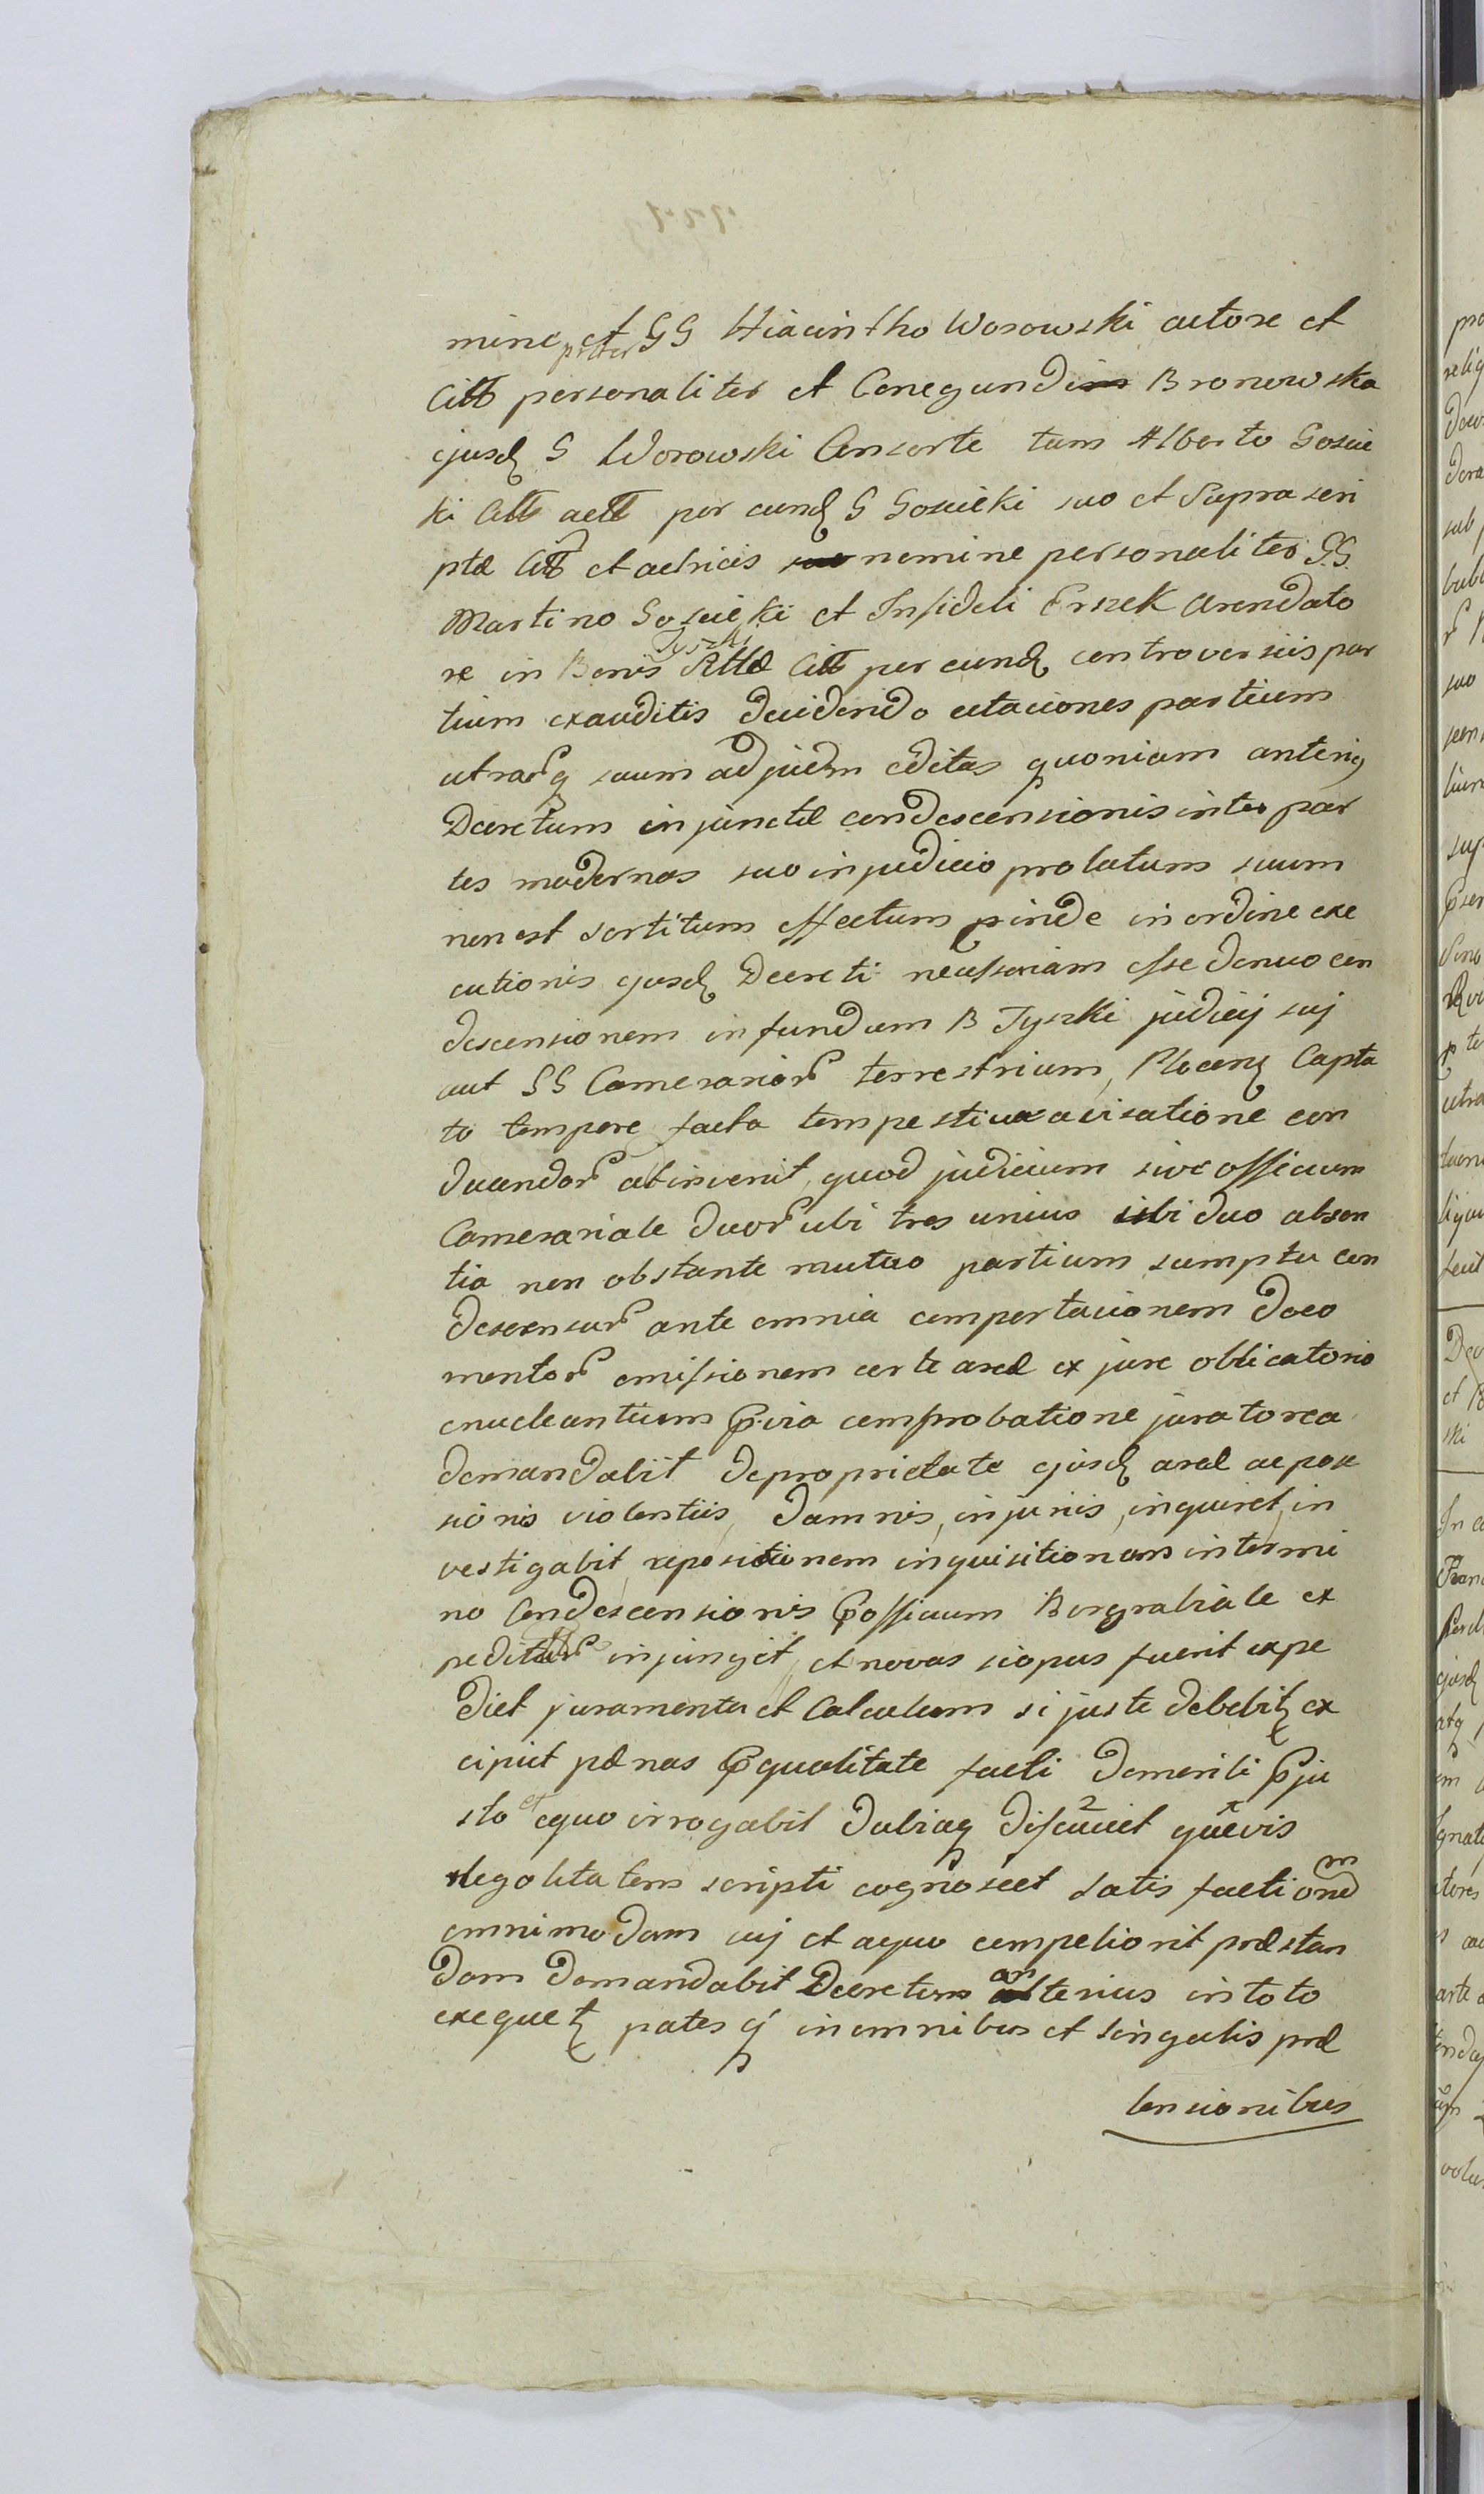 mine et GG Hiacintho Worowski actore et
Citt personaliter et Conegundi Bronowska
ejusd G Worowski Consorte tum Alberto Gosuc
ki Citt actt per eund G Gosucki suo et Suprascri
ptæ Citt et actricis nomine personaliter G.G.
Martino Gosucki et Infideli Erszek Arendato
re in Bonis Tyszki Rttæ Citt per eund controversiis par
tium exauditis decidendo citaciones partium
utrarq suum ad judm editas quoniam anteriq
Decretum injunctæ condescensionis inter par
tes modernas suo in judicio prolatum suum
non est sortitum effectum pinde in ordine exe
cutionis ejusd Decreti necessariam esse denuo con
descensionem in fundum B Tyszki judicij sui
aut GG Camerarior terrestrium Plocen Capta
to tempore facta tempestiva avisatione con
ducendor adinvenit, quod judicium sive officium
Camerariale duor ubi tres unius ubi duo absen
tia non obstante mutuo partium sumptu con
descensur ante omnia comportacionem docu
mentor emissionem certe areæ ex jure oblicatorio
enucleantium pvia comprobatione juratorea
demandabit de proprietate ejusd areæ ac posse
sionis violentiis, damnis, injuriis, inquiret, in
vestigabit repositionem inquisitionum in termi
no Condescensionis p officium Burgrabiale ex
peditar injunget, et novas si opus fuerit expe
diet juramenta et Calculum si juste debebit ex
cipiet pænas p qualitate facti demeriti p ju
sto et equo irrogabit dubiaq discuciet quævis
legalitatem scripti cognoscet satisfactionem
omnimodam cuj et a quo competierit præstan
dam demandabit Decretum anterius in toto
exequet pates q in omnibus et singulis præ
tensionibus